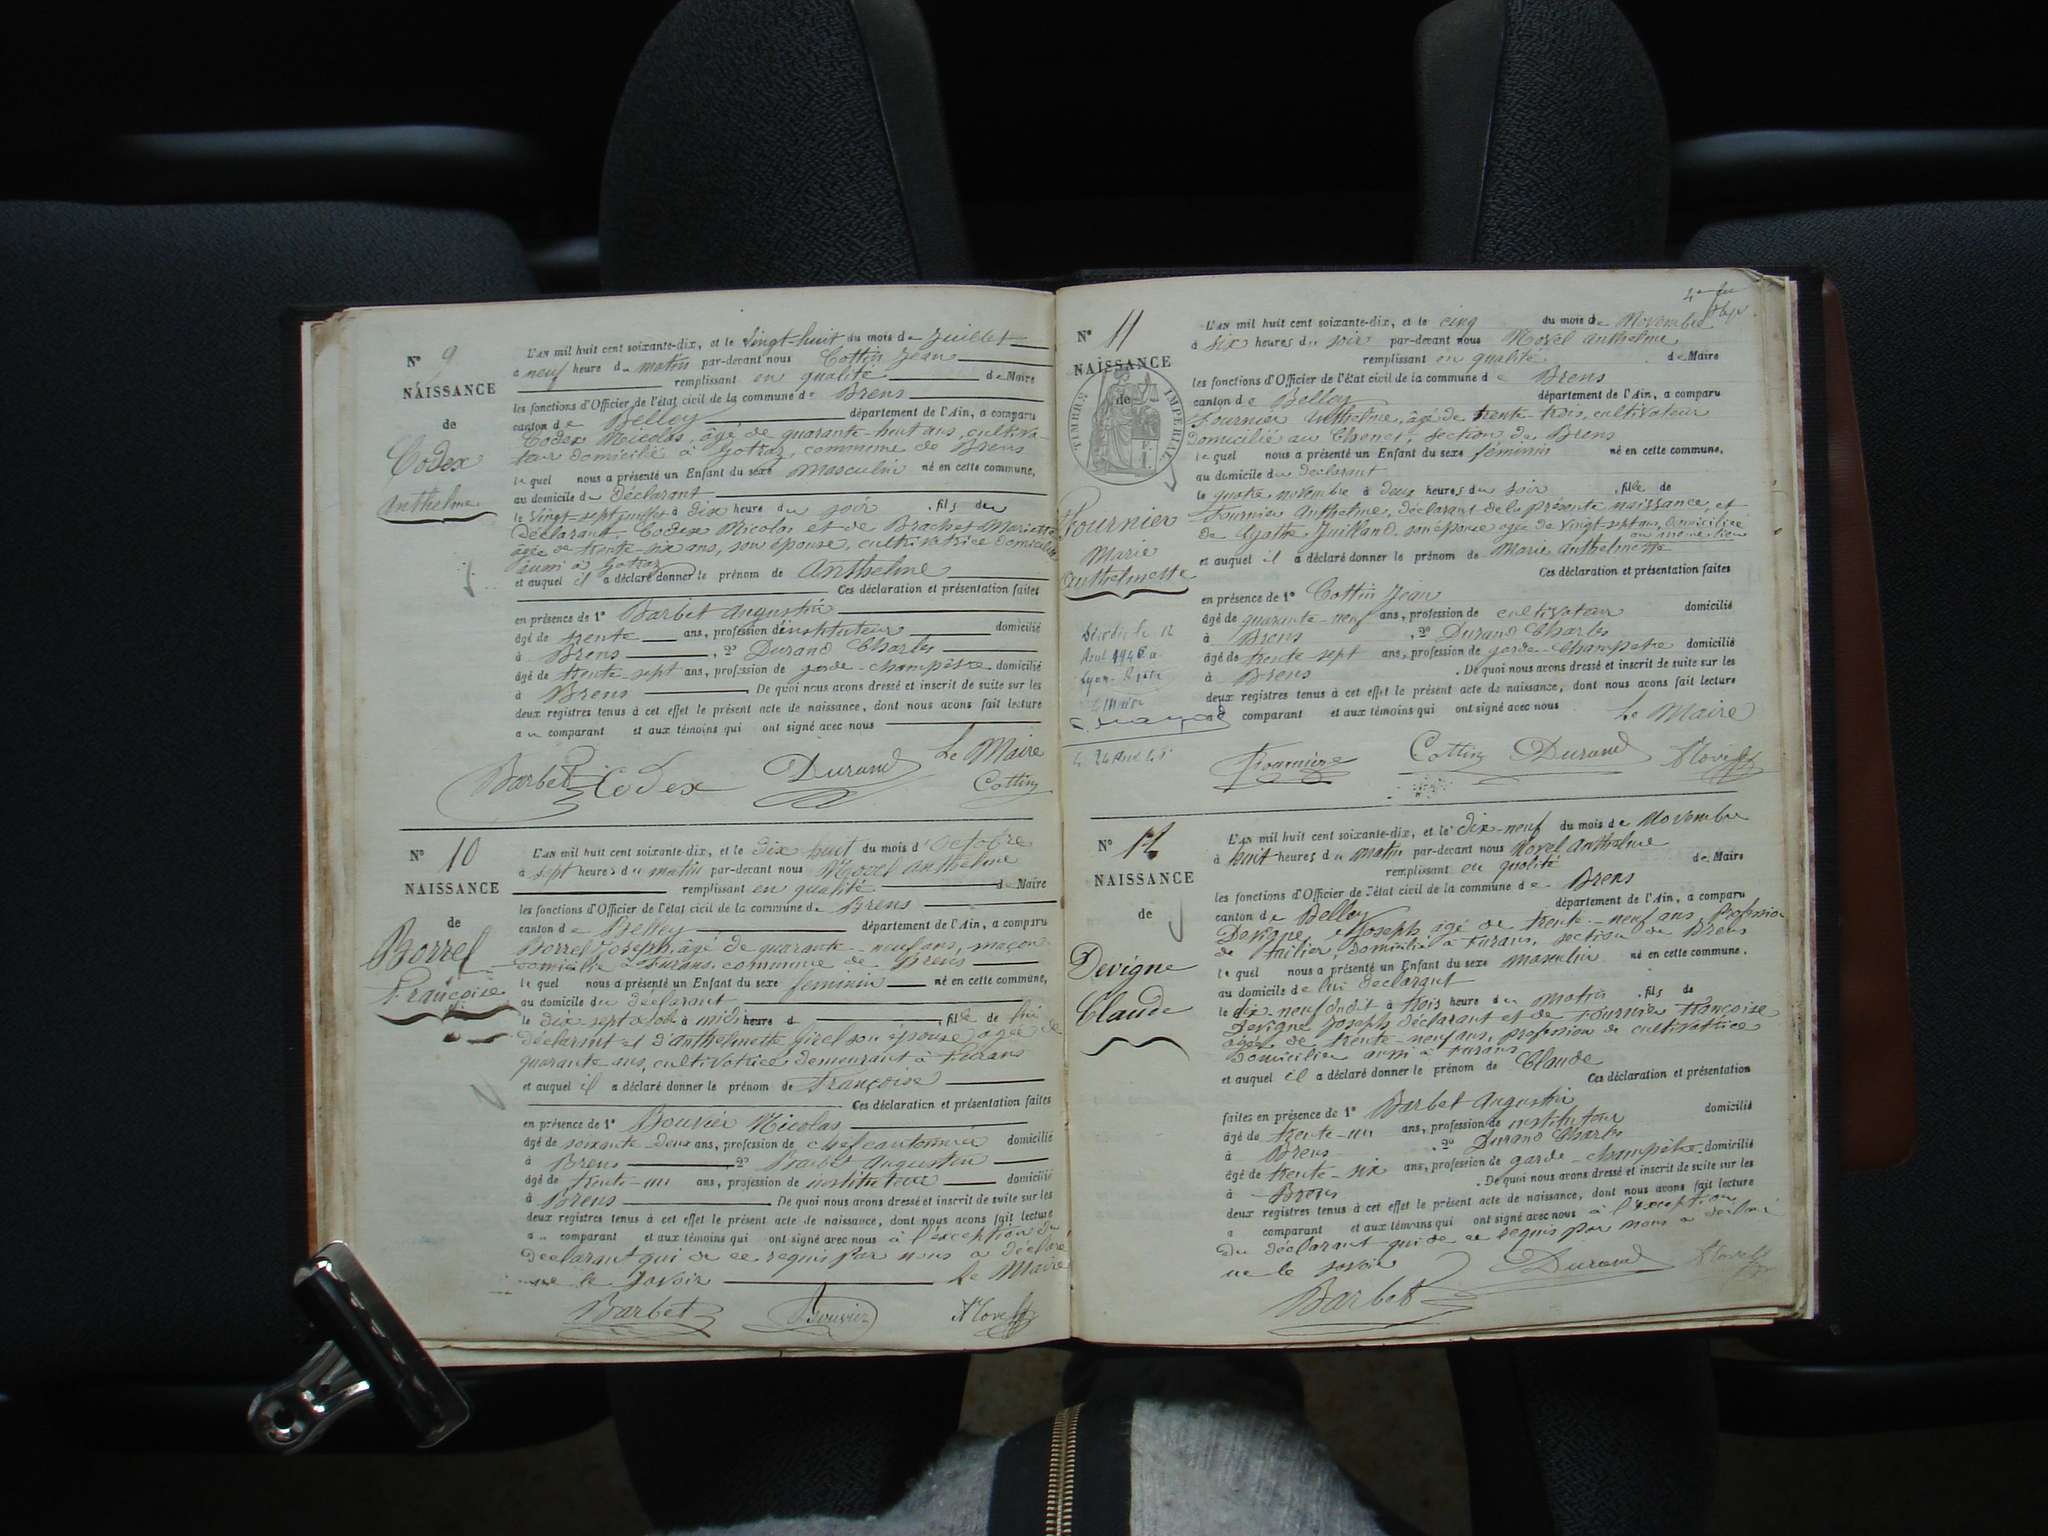 N° 9
NAISSANCE
de
Codex
Anthelme
L'AN mil huit cent soixante-dix, et le vingt-huit du mois de Juillet
à neuf heure du matin par-devant nous Cottin Jean
remplissant en qualité de Maire
les fonctions d'Officier de l'état civil de la commune de Brens
canton de Belley département de l'Ain, a comparu
Codex Nicolas, âgé de quarante-huit ans, cultiva-
teur domicilié à commune de Brens
le quel nous a présenté un Enfant du sexe masculin né en cette commune,
au domicile du déclarant
le vingt-sept juillet à dix heure du soir , fils du
déclarant, Codex Nicolas et de Brachet Mariette
âgée de trente-six ans, son épouse, cultivatrice domiciliée
aussi à
et auquel il a déclaré donner le prénom de Anthelme
Ces déclaration et présentation faites
en présence de 1° Barbet Augustin
âgé de trente ans, profession d'instituteur domicilié
à Brens , 2° Durand Charles
âgé de trente-sept ans, profession de garde-champêtre domicilié
à Brens . De quoi nous avons dressé et inscrit de suite sur les
deux registres tenus à cet effet le présent acte de naissance, dont nous avons fait lecture
au comparant et aux témoins qui ont signé avec nous
Le Maire
Barbet Codex Durand Cottin
N° 10
NAISSANCE
de
Borrel
Françoise
L'AN mil huit cent soixante-dix, et le dix huit du mois d'Octobre
à sept heures du matin par-devant nous Movel Anthelme
remplissant en qualité de Maire
les fonctions d'Officier de l'état civil de la commune de Brens
canton de Belley département de l'Ain, a comparu
Borrel Joseph, âgé de quarante-neuf ans, maçon
domicilié à Furans, commune de Brens
le quel nous a présenté un Enfant du sexe féminin né en cette commune,
au domicile du déclarant
le dix-sept octob à midi heure d , fille de lui
déclarant et d'Anthelmette son épouse âgée de
quarante ans, cultivatrice, demeurant à Furans
et auquel il a déclaré donner le prénom de Françoise
Ces déclaration et présentation faites
en présence de 1° Bouvier Nicolas
âgé de soixante-deux ans, profession de chef cantonnier domicilié
à Brens 2° Barbet Augustin
âgé de trente-un ans, profession de instituteur domicilié
à Brens . De quoi nous avons dressé et inscrit de suite sur les
deux registres tenus à cet effet le présent acte de naissance, dont nous avons fait lecture
au comparant et aux témoins qui ont signé avec nous à l'exception du
déclarant qui de ce requis par nous a déclaré
ne le savoir Le Maire
Barbet Bouvier Movel
N° 11
NAISSANCE
de
TIMBRE IMPÉRIAL
Fournier
Marie
Anthelmette
Décédée le 12
Août 1945 à
Lyon
Le Maire
L'AN mil huit cent soixante-dix, et le cinq du mois de Novembre
à six heures du soir par-devant nous Movel Anthelme
remplissant en qualité de Maire
les fonctions d'Officier de l'état civil de la commune de Brens
canton de Belley département de l'Ain, a comparu
Fournier Anthelme, âgé de trente-trois, cultivateur
domicilié au section de Brens
le quel nous a présenté un Enfant du sexe féminin né en cette commune,
au domicile du déclarant
le quatre novembre à deux heures du soir , fille de
Fournier Anthelme, déclarant de la présente naissance, et
de Agathe Juilland, son épouse âgée de vingt-sept ans, domiciliée
au même lieu
et auquel il a déclaré donner le prénom de Marie Anthelmette
Ces déclaration et présentation faites
en présence de 1° Cottin Jean
âgé de quarante-neuf ans, profession de cultivateur domicilié
à Brens , 2° Durand Charles
âgé de trente sept ans, profession de garde-champêtre domicilié
à Brens . De quoi nous avons dressé et inscrit de suite sur les
deux registres tenus à cet effet le présent acte de naissance, dont nous avons fait lecture
au comparant et aux témoins qui ont signé avec nous
Le Maire
Fournier Cottin Durand Movel
N° 12
NAISSANCE
de
Devigne
Claude
L'AN mil huit cent soixante-dix, et le dix-neuf du mois de Novembre
à huit heures du matin par-devant nous Movel Anthelme
remplissant en qualité de Maire
les fonctions d'Officier de l'état civil de la commune de Brens
canton de Belley département de l'Ain, a comparu
Devigne Joseph âgé de trente-neuf ans, profession
de domicilié à Furans, section de Brens
le quel nous a présenté un Enfant du sexe masculin né en cette commune,
au domicile de lui déclarant
le dix-neuf dudit à trois heure du matin , fils de
Devigne Joseph déclarant et de Fournier Françoise
âgée de trente-neuf ans, profession de cultivatrice
domiciliée aussi à Furans
et auquel il a déclaré donner le prénom de Claude
Ces déclaration et présentation
faites en présence de 1° Barbet Augustin
âgé de trente-un ans, profession de instituteur domicilié
à Brens , 2° Durand Charles
âgé de trente-six ans, profession de garde-champêtre domicilié
à Brens . De quoi nous avons dressé et inscrit de suite sur les
deux registres tenus à cet effet le présent acte de naissance, dont nous avons fait lecture
a comparant et aux témoins qui ont signé avec nous à l'exception
du déclarant qui de ce requis par nous a déclaré
ne le savoir
Barbet Durand Movel